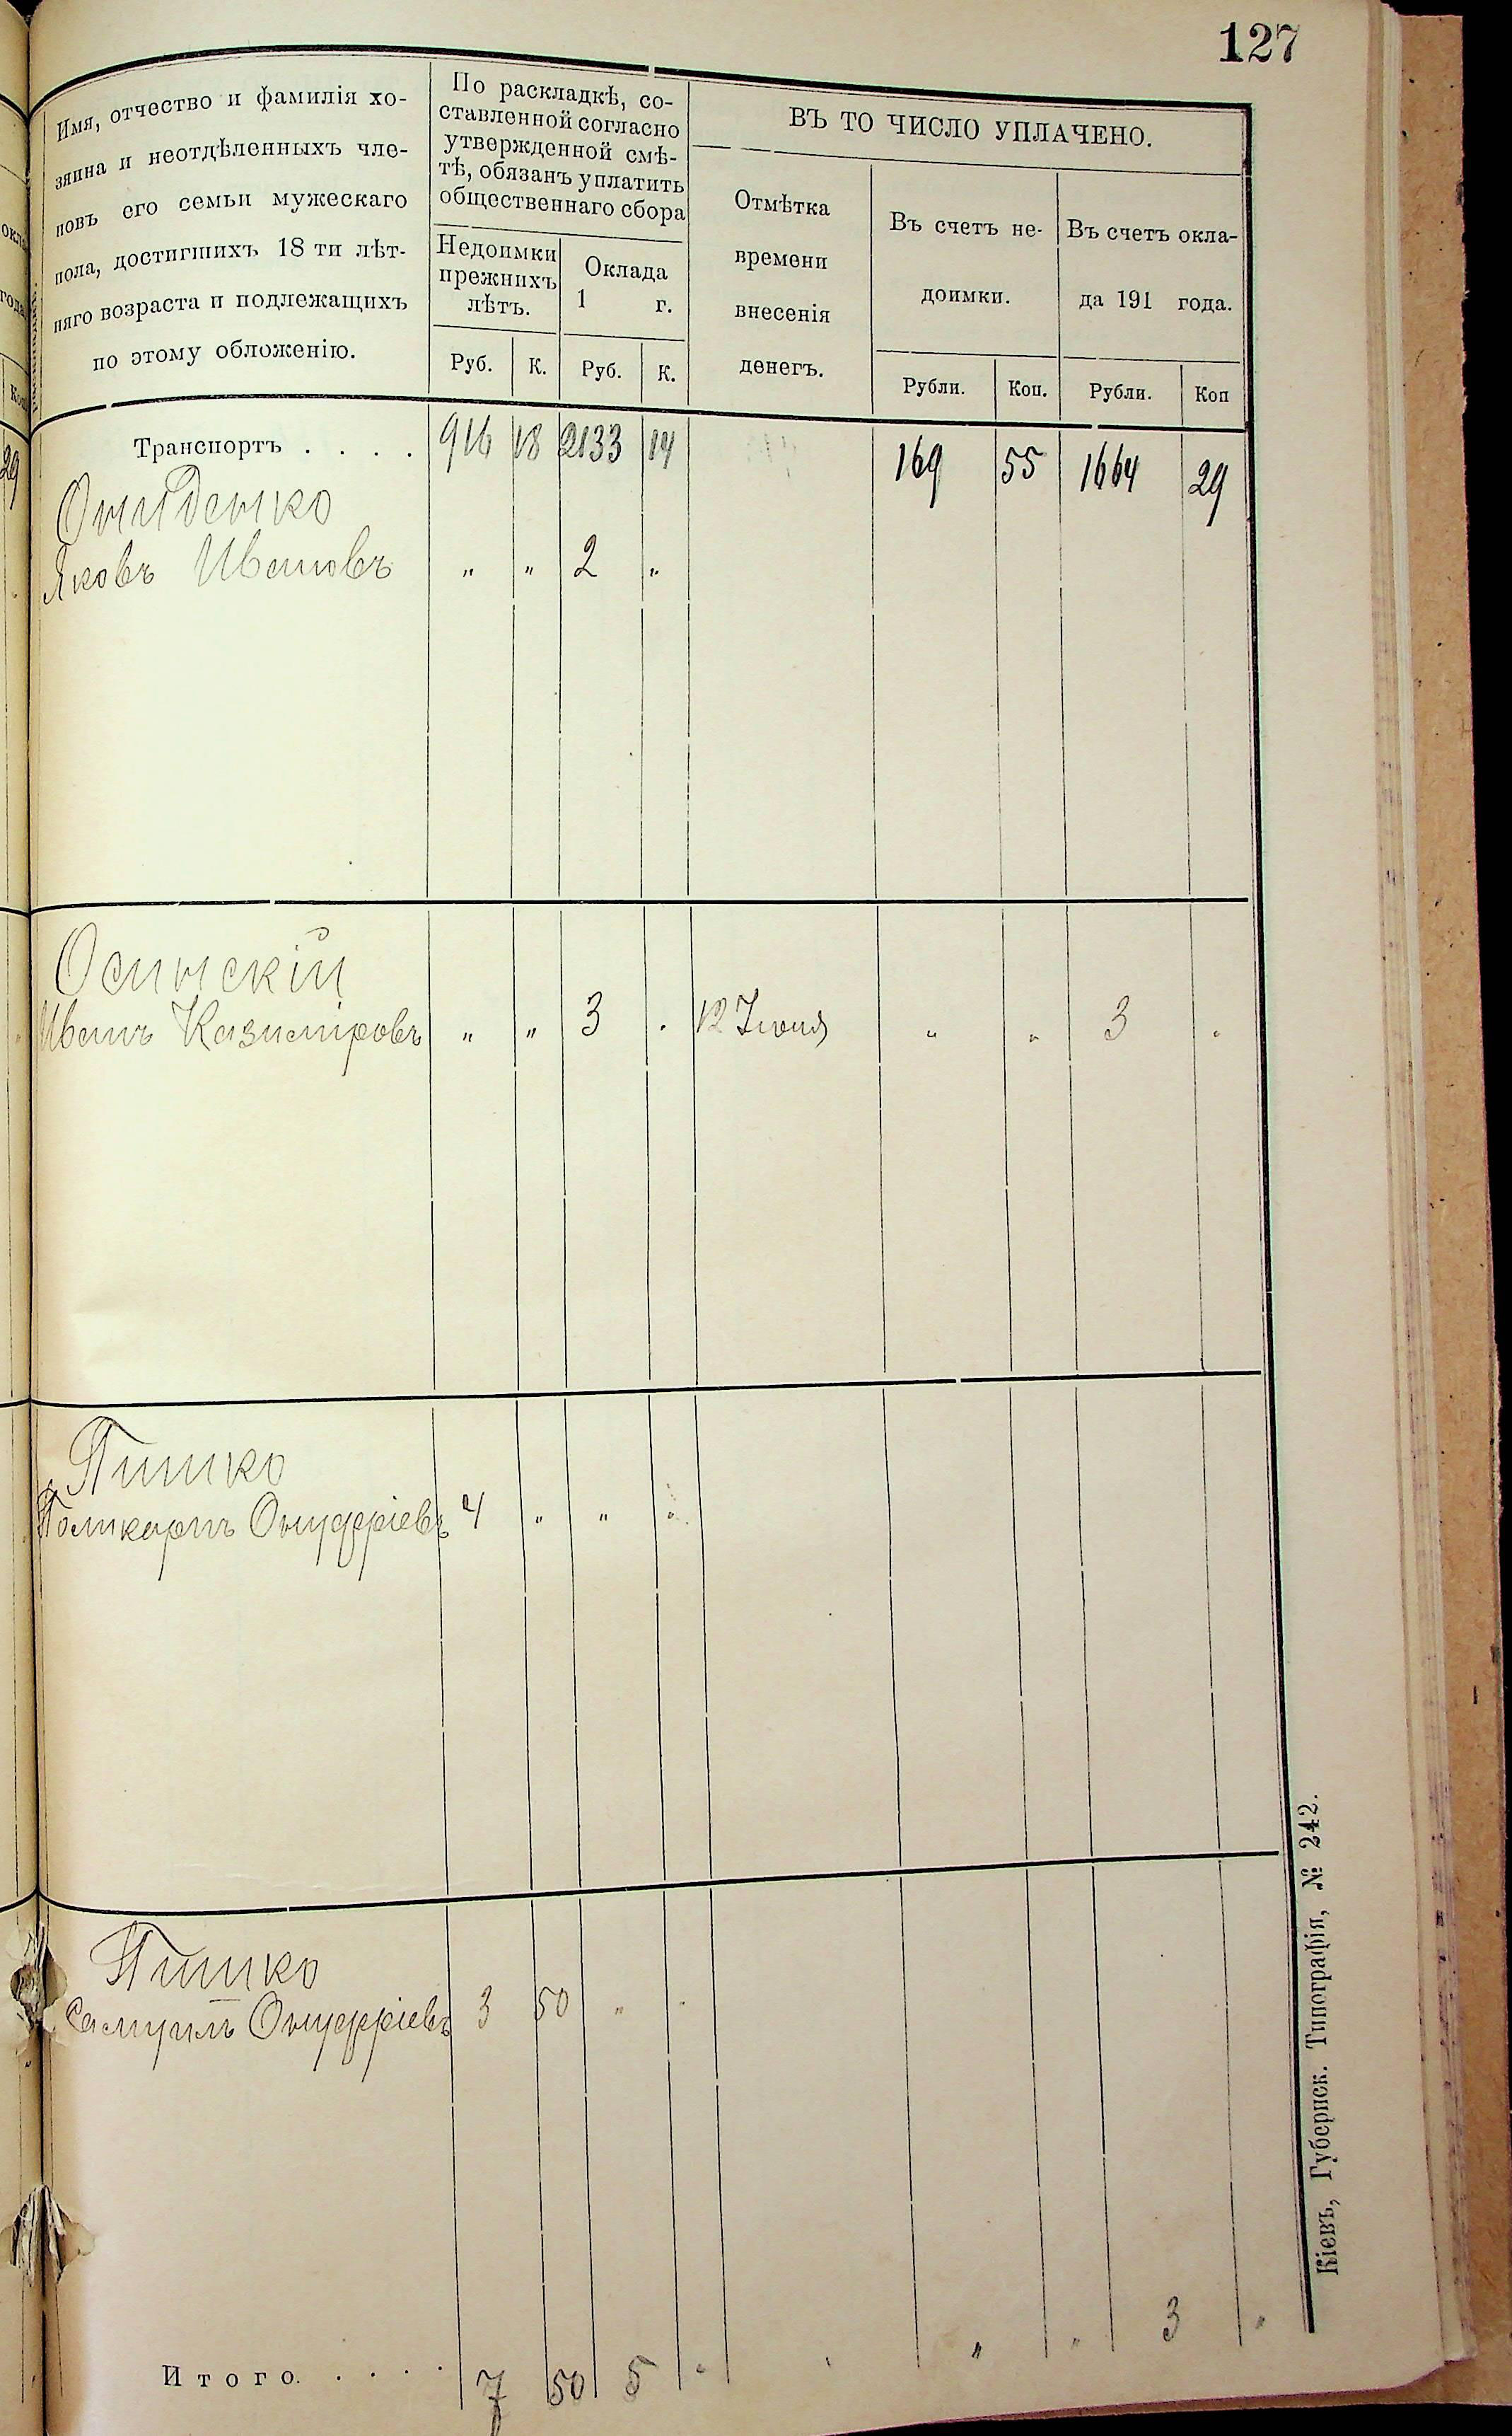 127
Имя, отчество и фамилія хо-
зяина и неотдѣленныхъ чле-
новъ его семьи мужескаго
пола, достигшихъ 18 ти лѣт-
няго возраста и подлежащихъ
по этому обложенію.
По раскладкѣ, со-
ставленной согласно
утвержденной смѣ-
тѣ, обязанъ уплатить
общественнаго сбора
Недоимки
прежнихъ
лѣтъ.
Оклада
1 г.
Руб. К. Руб. К.
ВЪ ТО ЧИСЛО УПЛАЧЕНО.
Отмѣтка
времени
внесенія
денегъ.
Въ счетъ не-
доимки.
Въ счетъ окла-
да 191 года.
Рубли. Коп. Рубли. Коп
Транспортъ . . . . 916 18 2133 14 169 55 1664 29
Ониденко
Яковъ Ивановъ „ „ 2 „
Осинскій
Иванъ Казиміровъ „ „ 3 . 12 Іюня „ „ 3 „
Пинко
Поликарпъ Онуфріевъ 4 „ „ „
Пинко
Самуилъ Онуфріевъ 3 50 „ „
Итого. . . . . 7 50 5 „ „ „ 3 „
Кіевъ, Губернск. Типографія, № 242.